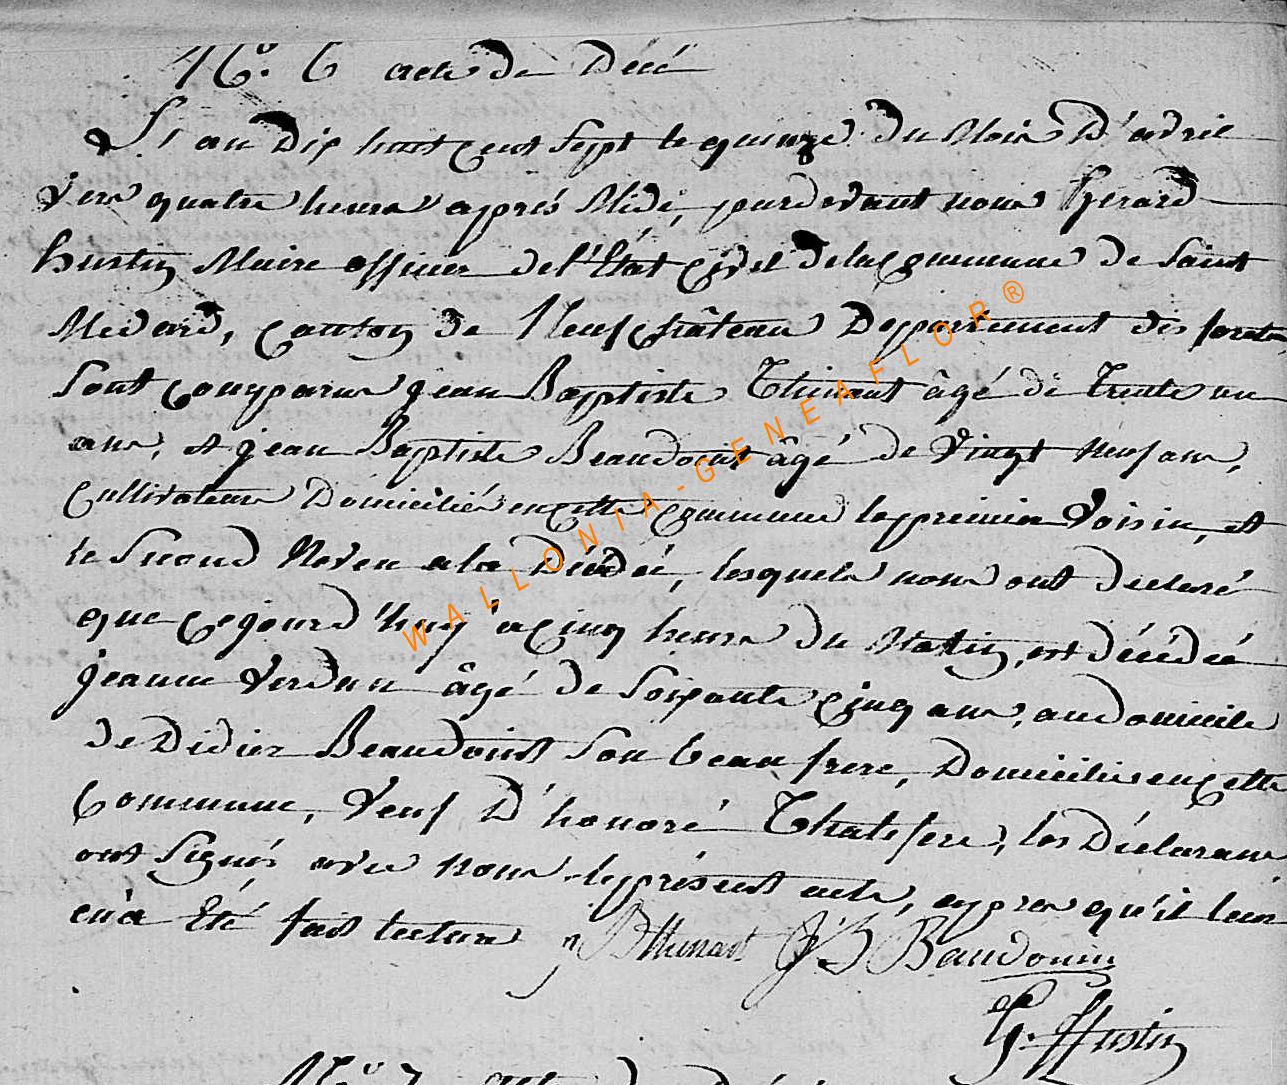 N.º 6 acte de Décé
L'an Dix huit cent Sept le quinze du Mois D'avril
vers quatre heures après Midi, pardevant nous Gerard
hustin Maire officier de l'État Civil de la Commune de Saint
Medard, Canton de Neufchâteau Departement des forets
Sont Comparus jean Baptiste Thinant âgé de Trente un
ans, et jean Baptiste Beaudoint âgé de Vingt neuf ans,
Cultivateurs Domiciliés en cette commune le premier Voisin, et
le Second Neveu a la Décédée, lesquels nous ont declaré
que Cejourd'huy a cinq heures du Matin, est décédée
jeanne Verdun âgé de Soixante cinq ans, au domicile
de Didier Beaudoint Son beau frere, Domicilié en cette
Commune, Veuf D'honoré les Déclarans
ont Signés avec nous le présent acte, apres qu'il leur
en a Eté fait lecture J B Baudouin
G. Hustin
WALLONIA-GENEAFLOR®